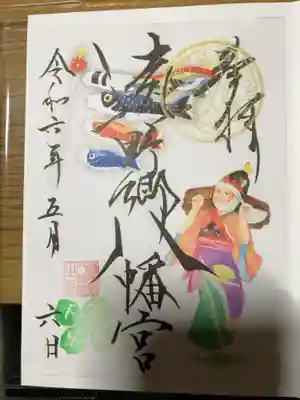 奉拝
野郷八幡宮
令和六年五月六日